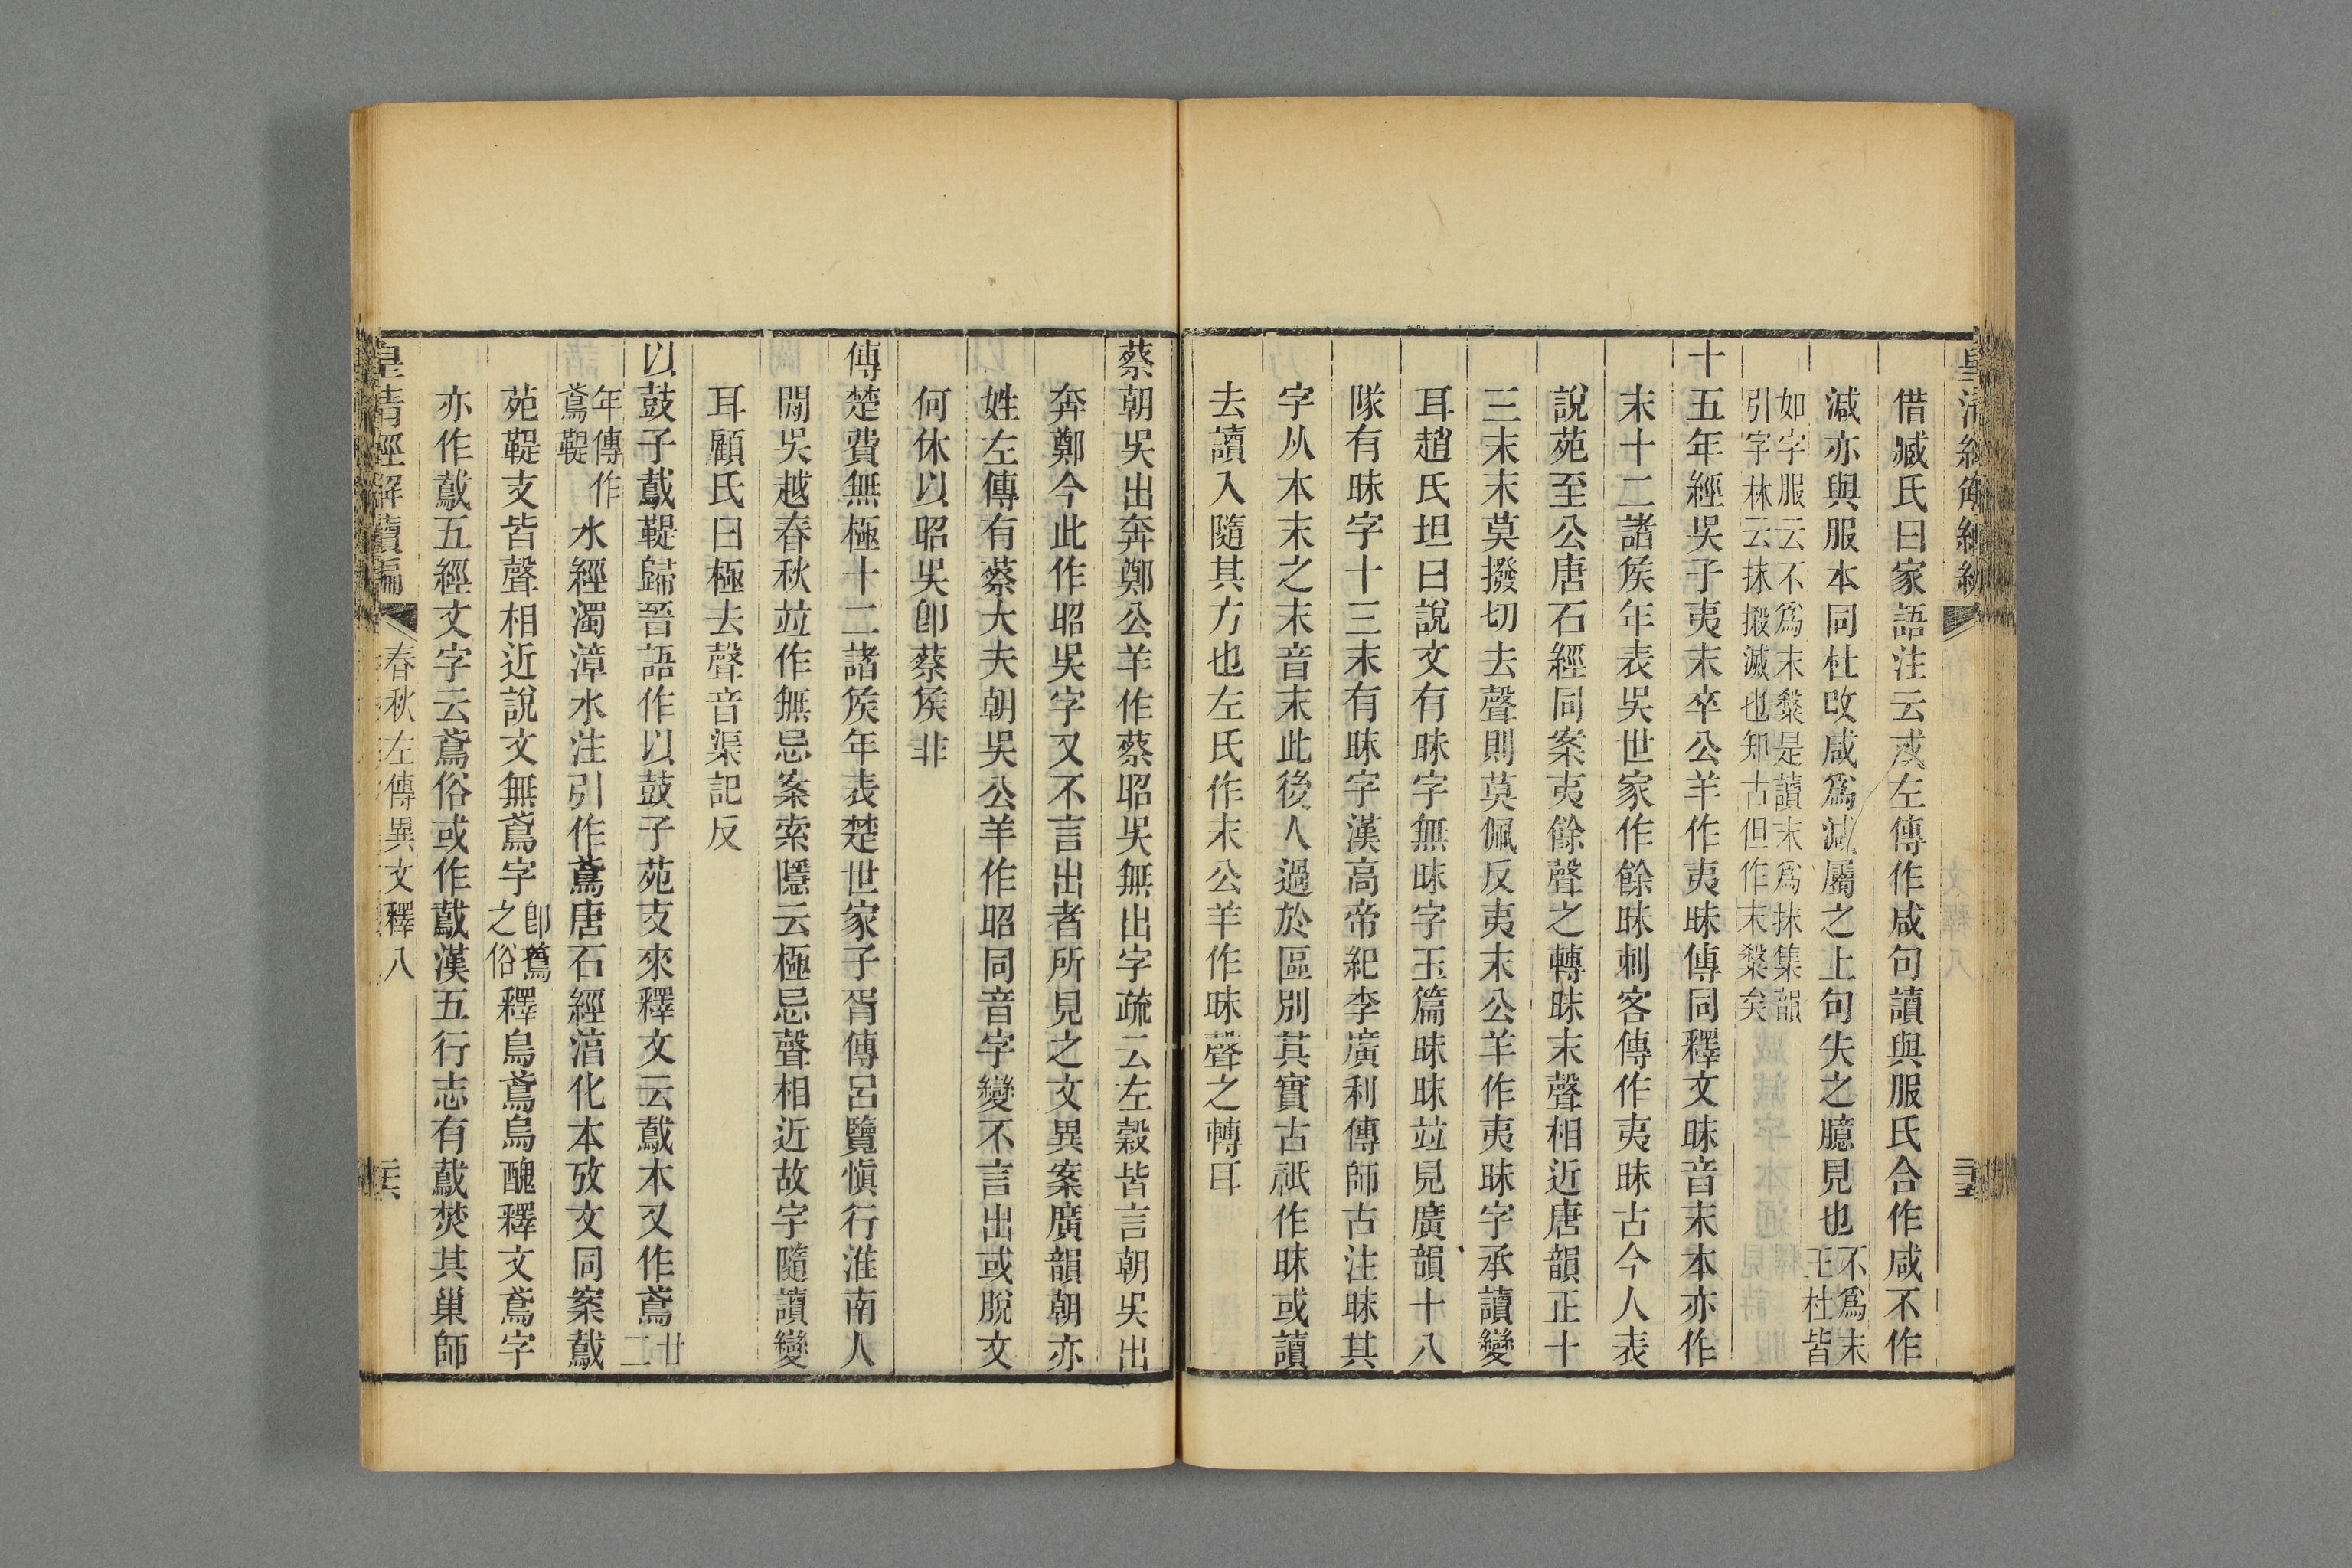 借臧氏曰家語注云或左傳作咸句讀與服氏合作咸不作
減亦與服本同杜改咸爲減屬之上句失之臆見也不爲末王杜皆
如字服云不爲末槃是讀末爲抹集韻引字林云抹摋滅也知古但作末槃矣
十五年經吳子夷末卒公羊作夷昧傳同釋文昧音末本亦作
末十二諸矦年表吳世家作餘昧刺客傳作夷昧古今人表
說苑至公唐石經同案夷餘聲之轉昧末聲相近唐韻正十
三末末莫撥切去聲則莫佩反夷末公羊作夷昧字承讀變
耳趙氏坦曰說文有昧字無昩字玉篇昧昩竝見廣韻十八
隊有昧字十三末有昩字漢高帝紀李廣利傳師古注昩其
字从本末之末音末此後人過於區別其實古祇作昧或讀
去讀入隨其方也左氏作末公羊作昧聲之轉耳
蔡朝吳出奔鄭公羊作蔡昭吳無出字疏云左穀皆言朝吳出
奔鄭今此作昭吳字又不言出者所見之文異案廣韻朝亦
姓左傳有蔡大夫朝吳公羊作昭同音字變不言出或脫文
何休以昭吳卽蔡矦非
傳楚費無極十二諸矦年表楚世家子胥傳呂覽愼行淮南人
閒吳越春秋竝作無忌案索隱云極忌聲相近故字隨讀變
耳顧氏曰極去聲音渠記反
以鼓子䳒鞮歸晉語作以鼓子苑支來釋文云䳒本又作鳶廿二
年傳作鳶鞮水經濁漳水注引作鳶唐石經湻化本攷文同案䳒
苑鞮支皆聲相近說文無鳶字卽鷻之俗釋鳥鳶烏醜釋文鳶字
亦作䳒五經文字云鳶俗或作䳒漢五行志有䳒焚其巢師
皇清經解續編
春秋左傳異文釋八